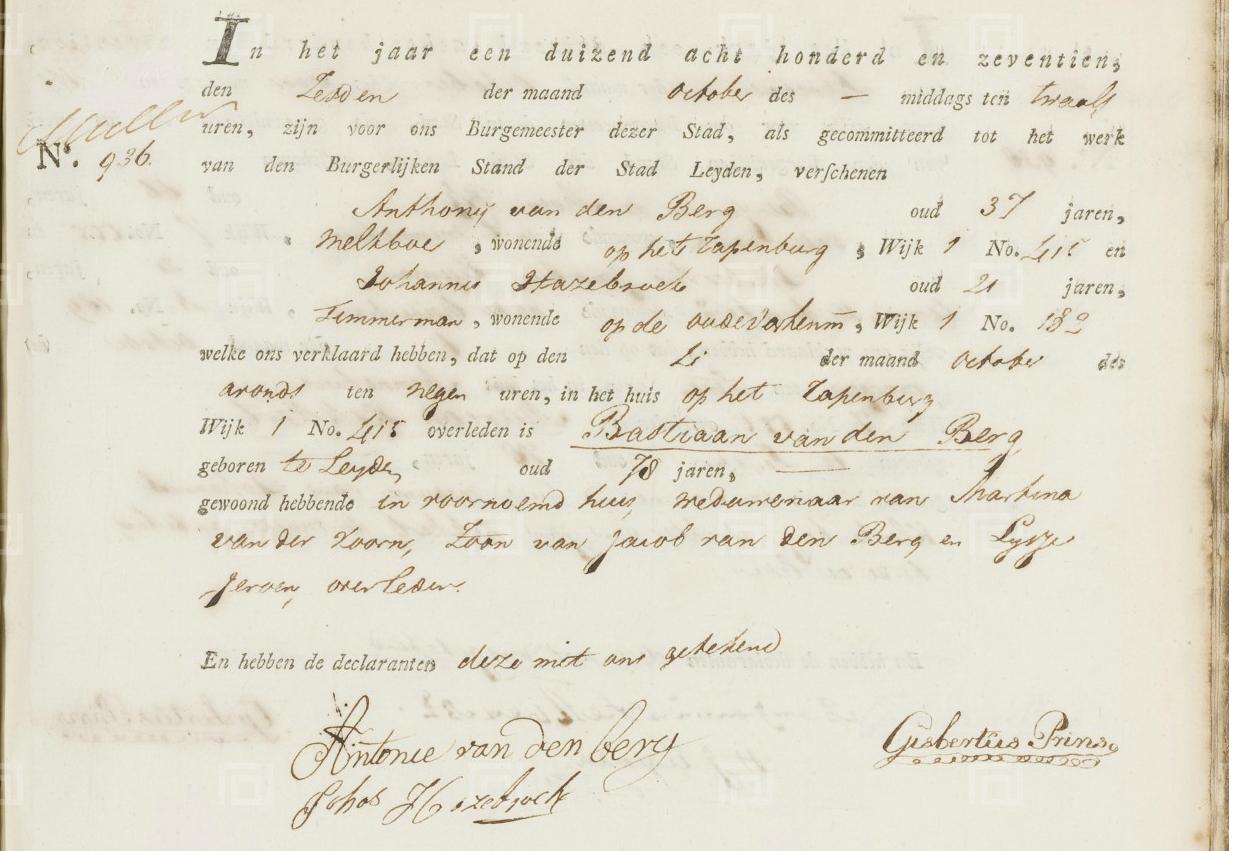 In het jaar een duizend acht honderd en zeventien,
den Zesden der maand October des — middags ten twaalf
uren, zijn voor ons Burgemeester dezer Stad, als gecommitteerd tot het werk
N°. 936.
van den Burgerlijken Stand der Stad Leyden, verschenen
Anthonij van den Berg oud 37 jaren,
melkboer, wonende op het Zapenburg, Wijk 1 No. 415 en
Johannis Hazebroek oud 21 jaren,
Timmerman, wonende op de oude, Wijk 1 No. 182
welke ons verklaard hebben, dat op den der maand October des
avonds ten negen uren, in het huis op het Zapenburg
Wijk 1 No. 415 overleden is Bastiaan van den Berg
geboren te Leyden oud 78 jaren, —
gewoond hebbende in voornoemd huis, weduwenaar van Martina
van der Hoorn, Zoon van Jacob van den Berg en Lysje
overleden.
En hebben de declaranten deze met ons getekend
Antonie van den berg
Gisbertus Prins
Johos Hazebroek